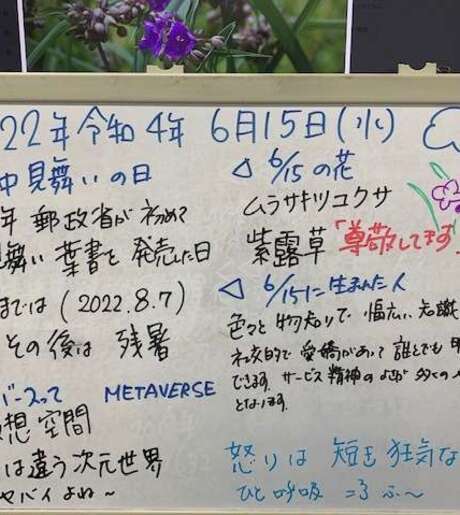 22年令和4年 6月15日(水)
中見舞いの日
年 郵政省が初めて
見舞い葉書を発売した日
までは(2022.8.7)
その後は 残暑
バースって METAVERSE
想空間
は違う次元世界
ヤバイよね〜
◁ 6/15の花
ムラサキツユクサ
紫露草「尊敬してます」
◁ 6/15に生まれた人
色々と物知りで 幅広い知識
社交的で愛嬌があって誰とでも
できます。サービス精神の
となります。
怒りは 短き狂気な
ひと呼吸